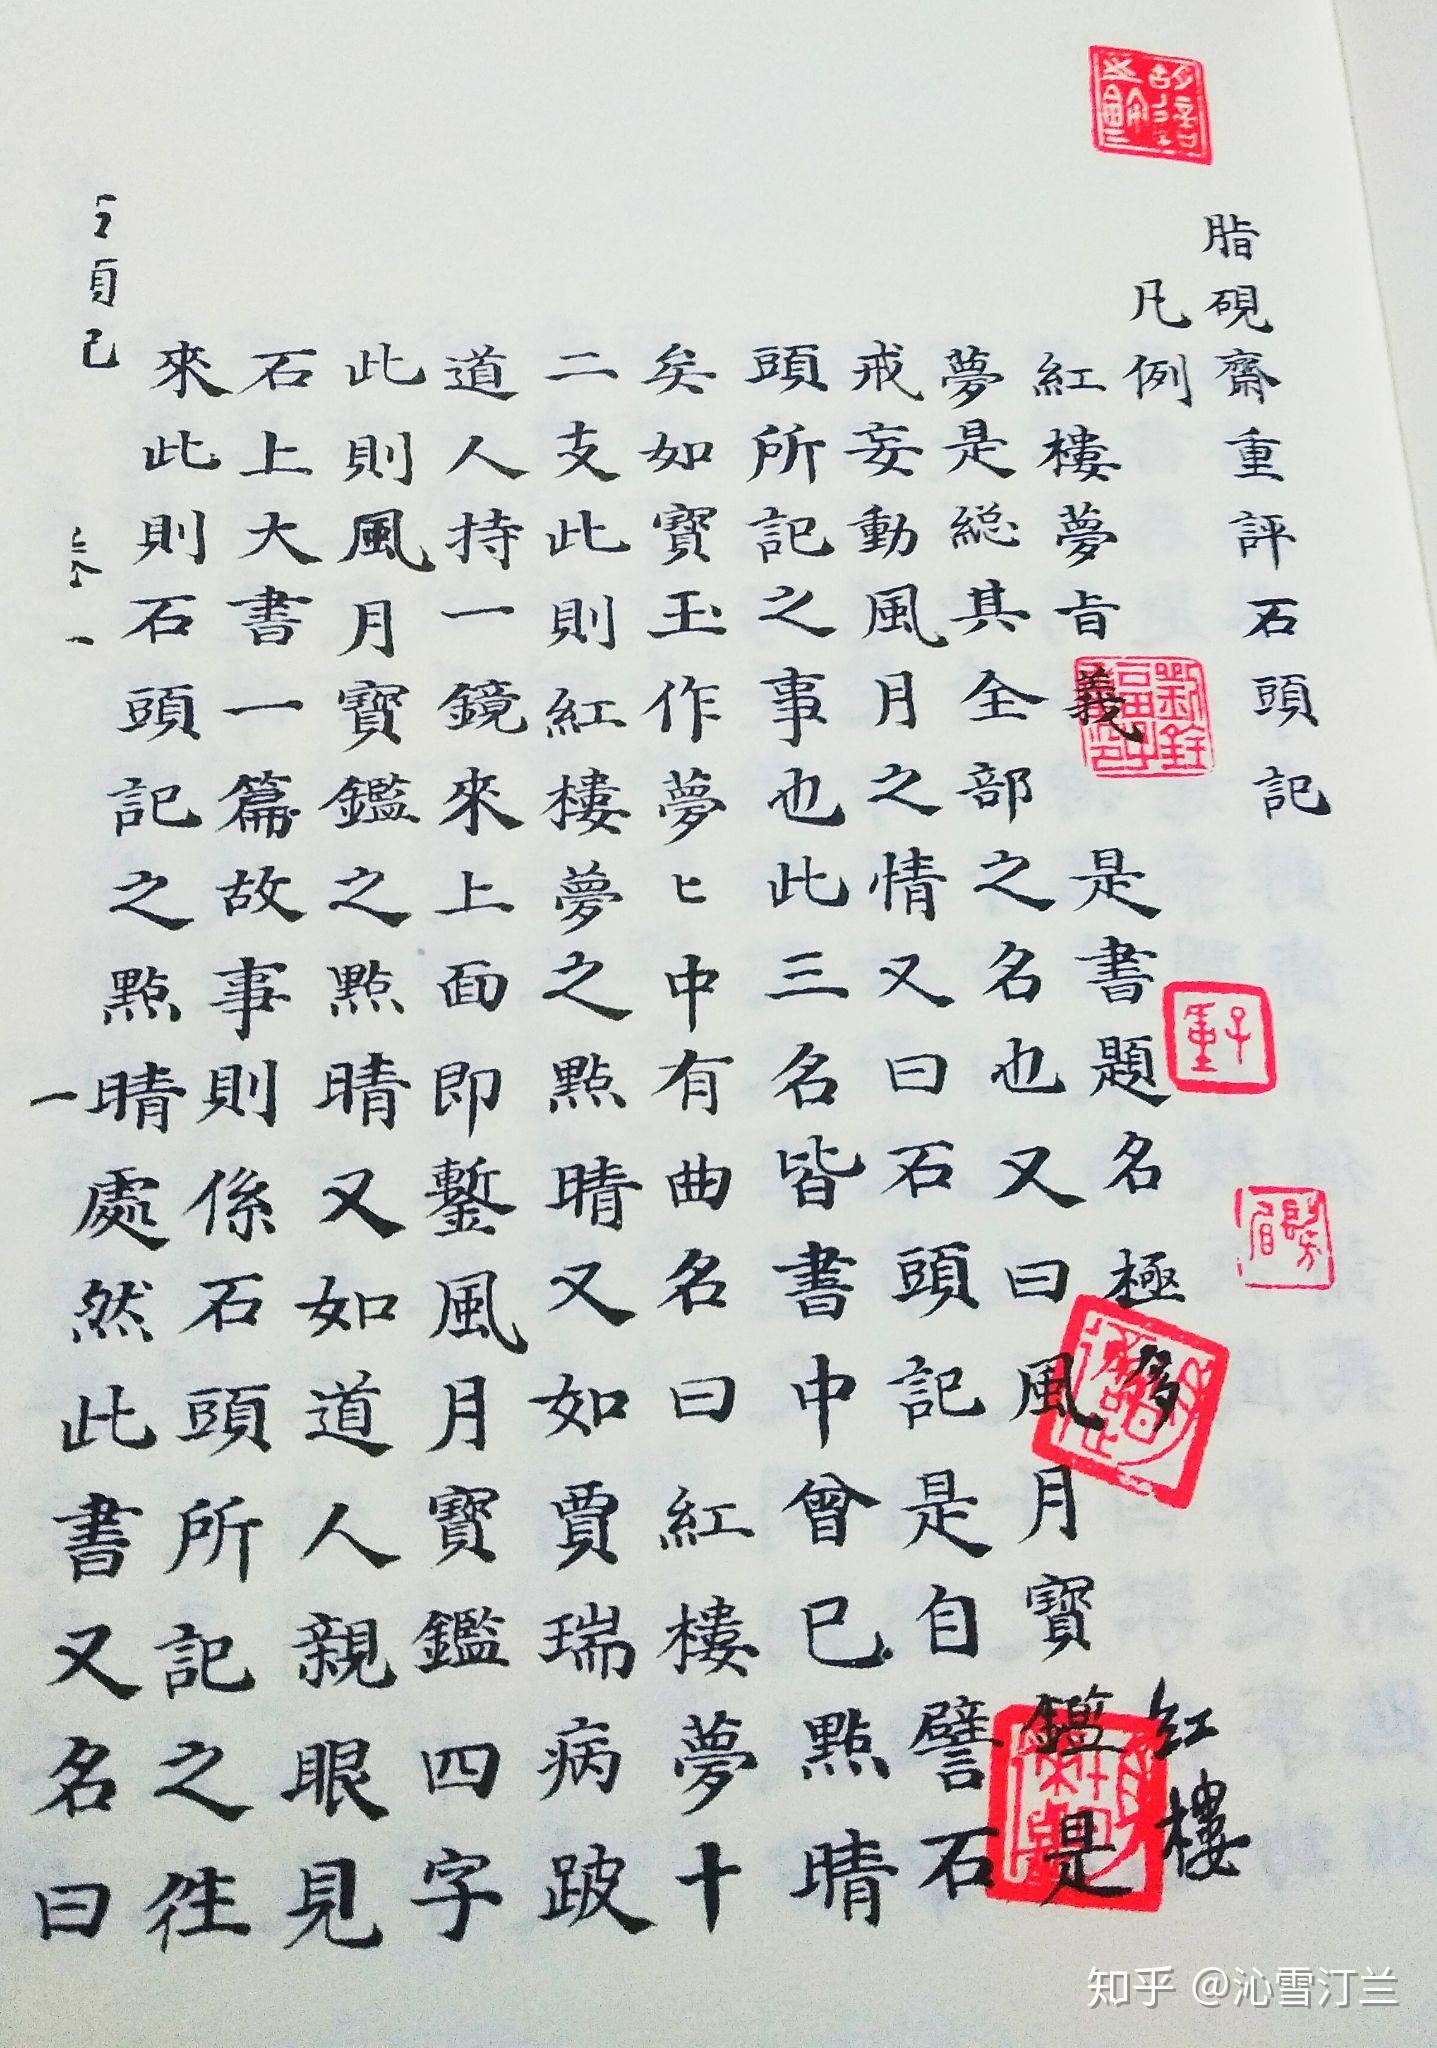 脂硯齋重評石頭記
凡例
紅樓夢旨義 是書題名極多 紅樓
夢是総其全部之名也又曰風月寶鑑是
戒妄動風月之情又曰石頭記是自譬石
頭所記之事也此三名皆書中曾已點晴
矣如寶玉作夢匕中有曲名曰紅樓夢十
二支此則紅樓夢之點晴又如賈瑞病跛
道人持一鏡來上面即鏨風月寶鑑四字
此則風月寶鑑之點晴又如道人親眼見
石上大書一篇故事則係石頭所記之徃
來此則石頭記之點晴處然此書又名曰
劉銓福子重印
子重
知乎 @沁雪汀兰